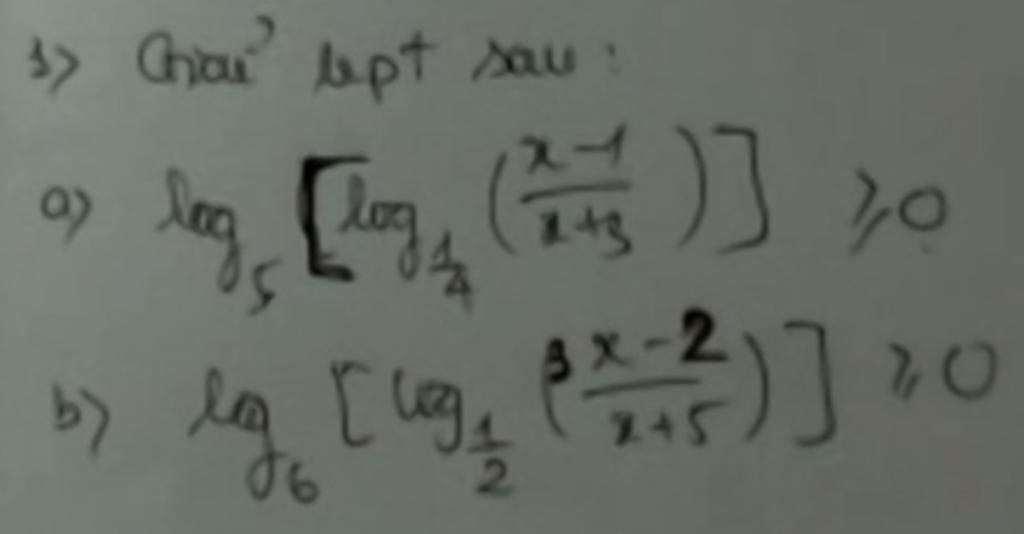 1) Giải bpt sau :
a) log₅ [log_{1/4} ((x-1)/(x+3))] ≥ 0
b) log₆ [log_{1/2} ((3x-2)/(x+5))] ≥ 0